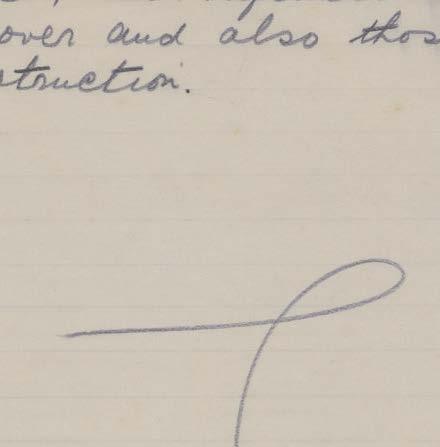 over and also thos
struction.